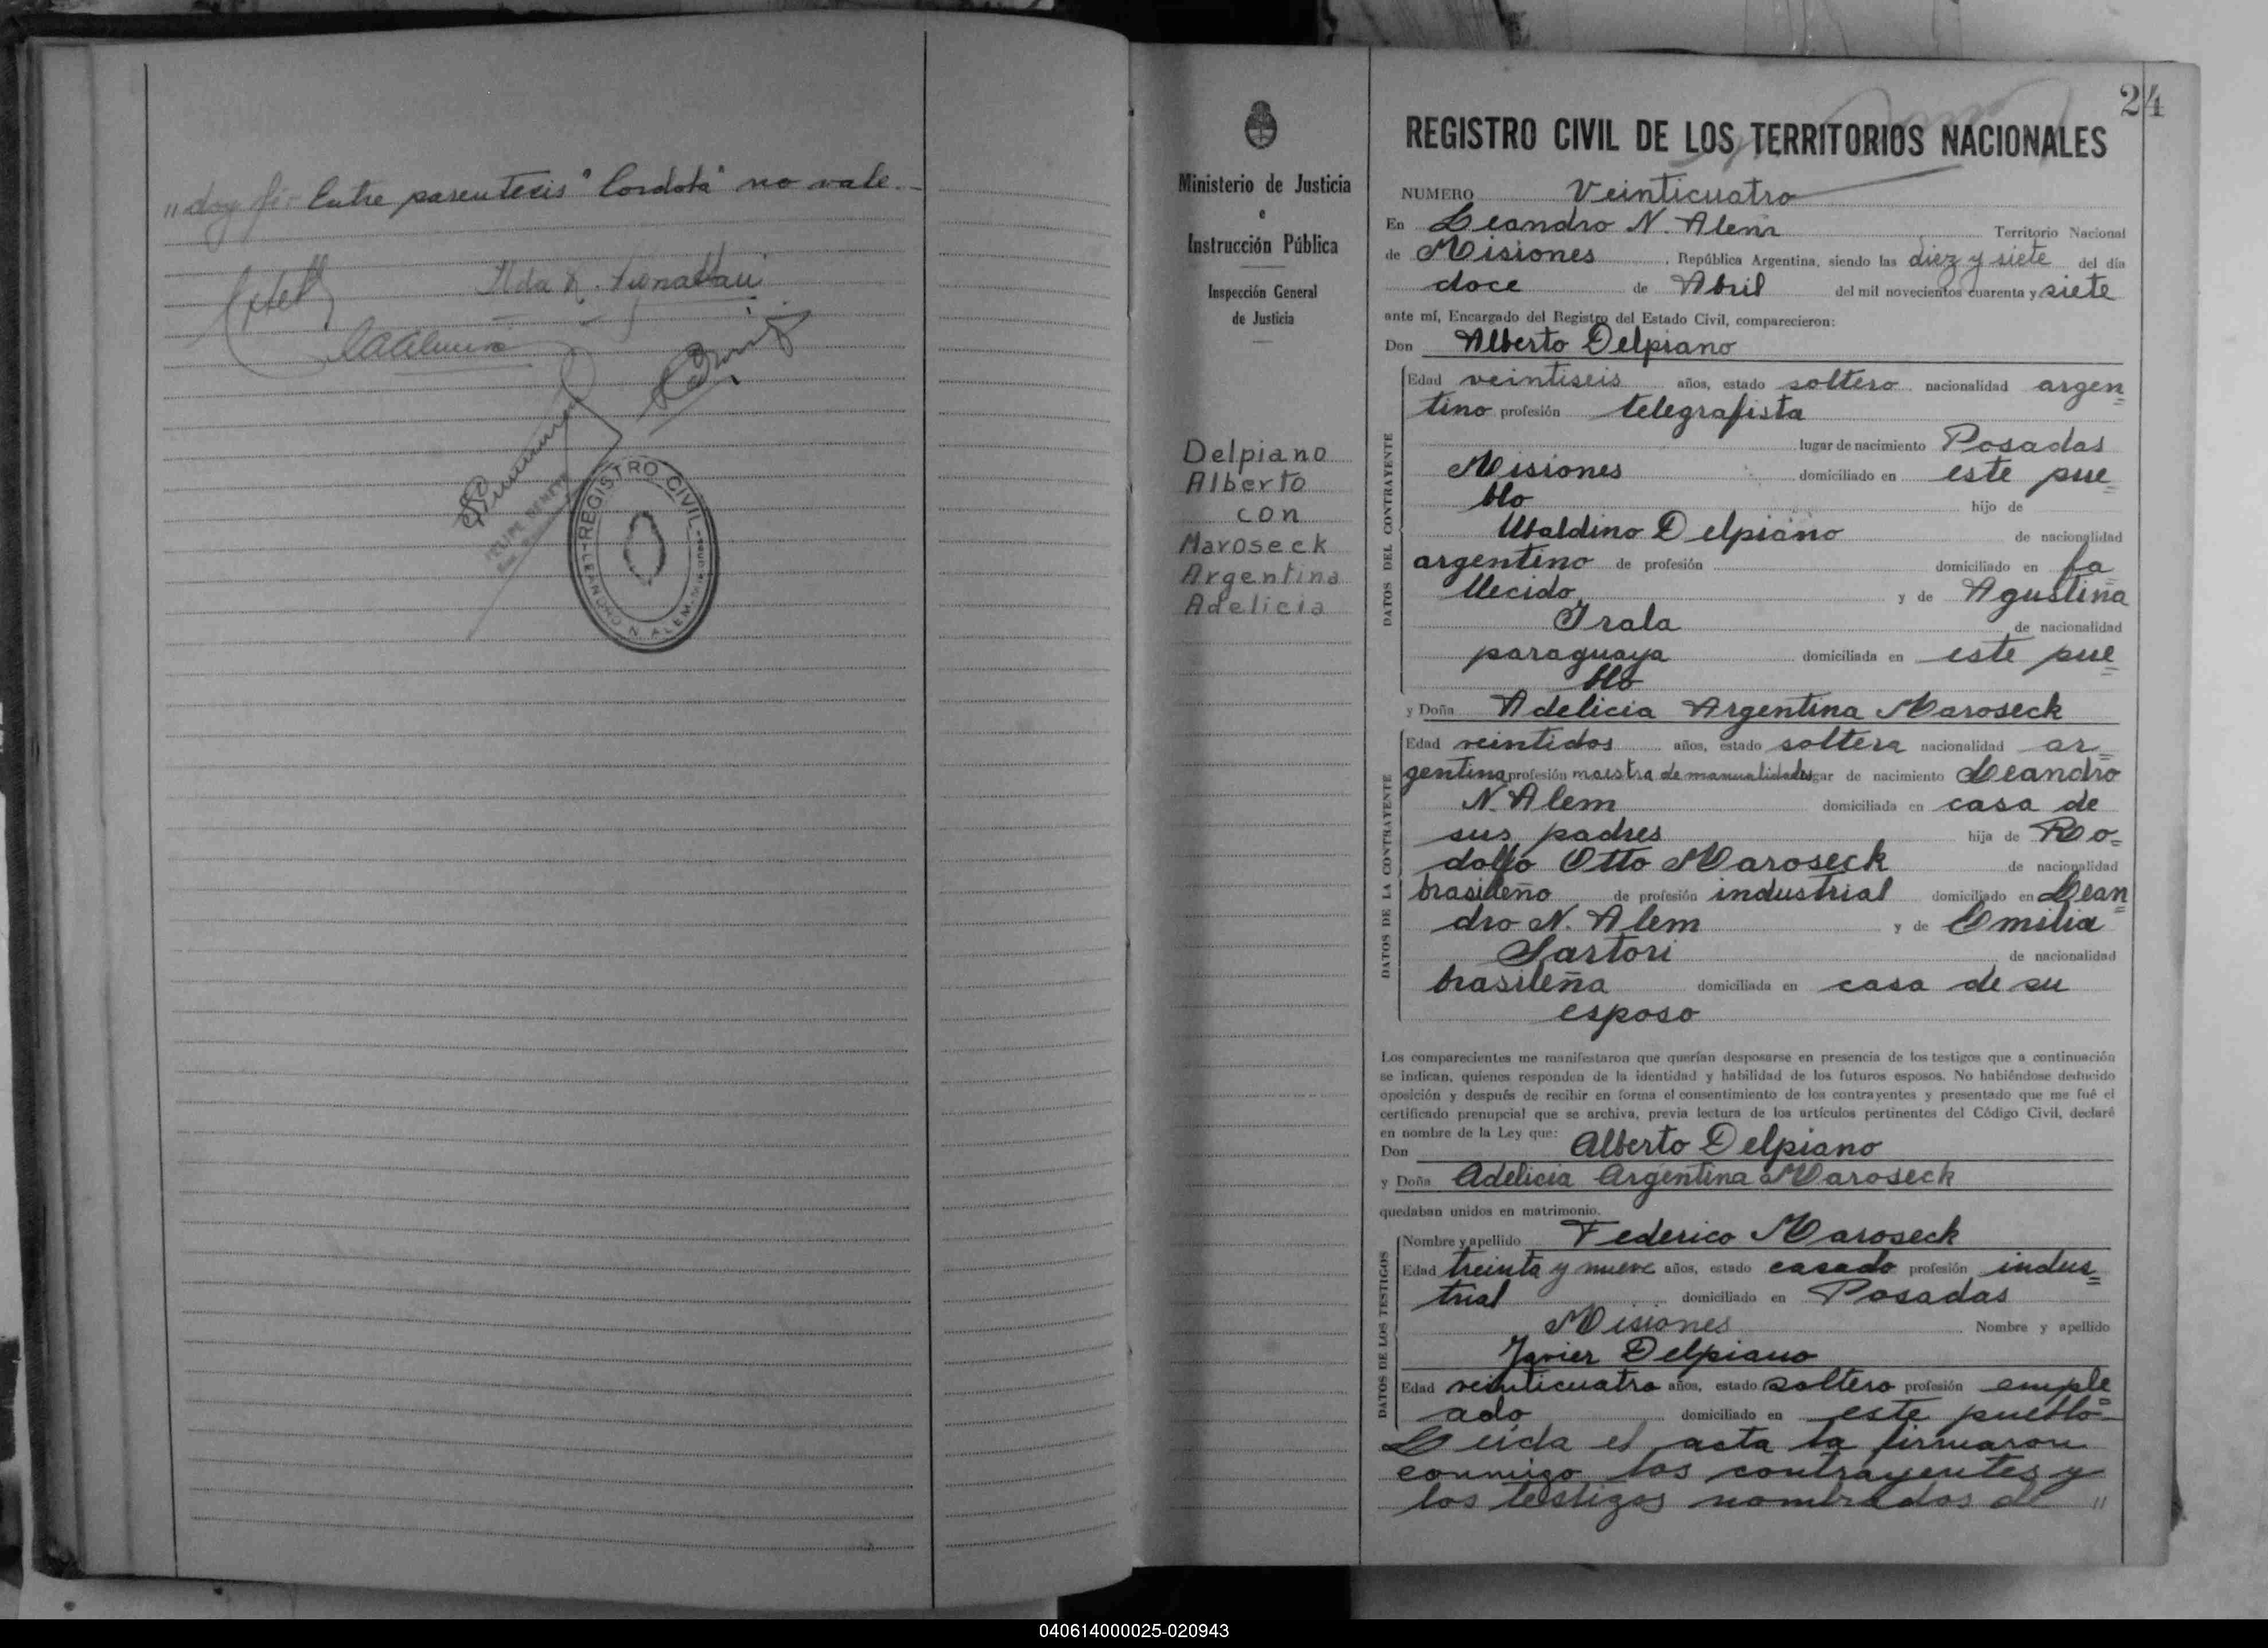 "doy fé- Entre parentesis "Cordoba" no vale.-
REGISTRO CIVIL
LEANDRO N. ALEM
24
Ministerio de Justicia
e
Instrucción Pública
Inspección General
de Justicia
Delpiano
Alberto
con
Maroseck
Argentina
Adelicia
REGISTRO CIVIL DE LOS TERRITORIOS NACIONALES
NUMERO Veinticuatro
En Leandro N. Alem Territorio Nacional
de Misiones, República Argentina, siendo las diez y siete del día
doce de Abril del mil novecientos cuarenta y siete
ante mí, Encargado del Registro del Estado Civil, comparecieron:
Don Alberto Delpiano
DATOS DEL CONTRAYENTE
Edad veintiseis años, estado soltero nacionalidad argen=
tino profesión telegrafista
lugar de nacimiento Posadas
Misiones domiciliado en este pue=
blo hijo de
Ubaldino Delpiano de nacionalidad
argentino de profesión domiciliado en fa=
llecido y de Agustina
Irala de nacionalidad
paraguaya domiciliada en este pue=
blo
y Doña Adelicia Argentina Maroseck
DATOS DE LA CONTRAYENTE
Edad veintidos años, estado soltera nacionalidad ar=
gentina profesión maestra de manualidades lugar de nacimiento Leandro
N. Alem domiciliada en casa de
sus padres hija de Ro=
dolfo Otto Maroseck de nacionalidad
brasileño de profesión industrial domiciliado en Lean=
dro N. Alem y de Emilia
Sartori de nacionalidad
brasileña domiciliada en casa de su
esposo
Los comparecientes me manifestaron que querían desposarse en presencia de los testigos que a continuación
se indican, quienes responden de la identidad y habilidad de los futuros esposos. No habiéndose deducido
oposición y después de recibir en forma el consentimiento de los contrayentes y presentado que me fué el
certificado prenupcial que se archiva, previa lectura de los artículos pertinentes del Código Civil, declaré
en nombre de la Ley que:
Don Alberto Delpiano
y Doña Adelicia Argentina Maroseck
quedaban unidos en matrimonio.
DATOS DE LOS TESTIGOS
Nombre y apellido Federico Maroseck
Edad treinta y nueve años, estado casado profesión indus=
trial domiciliado en Posadas
Misiones Nombre y apellido
Javier Delpiano
Edad veinticuatro años, estado soltero profesión emple=
ado domiciliado en este pueblo-
Leida el acta la firmaron
conmigo los contrayentes y
los testigos nombrados de "
040614000025-020943